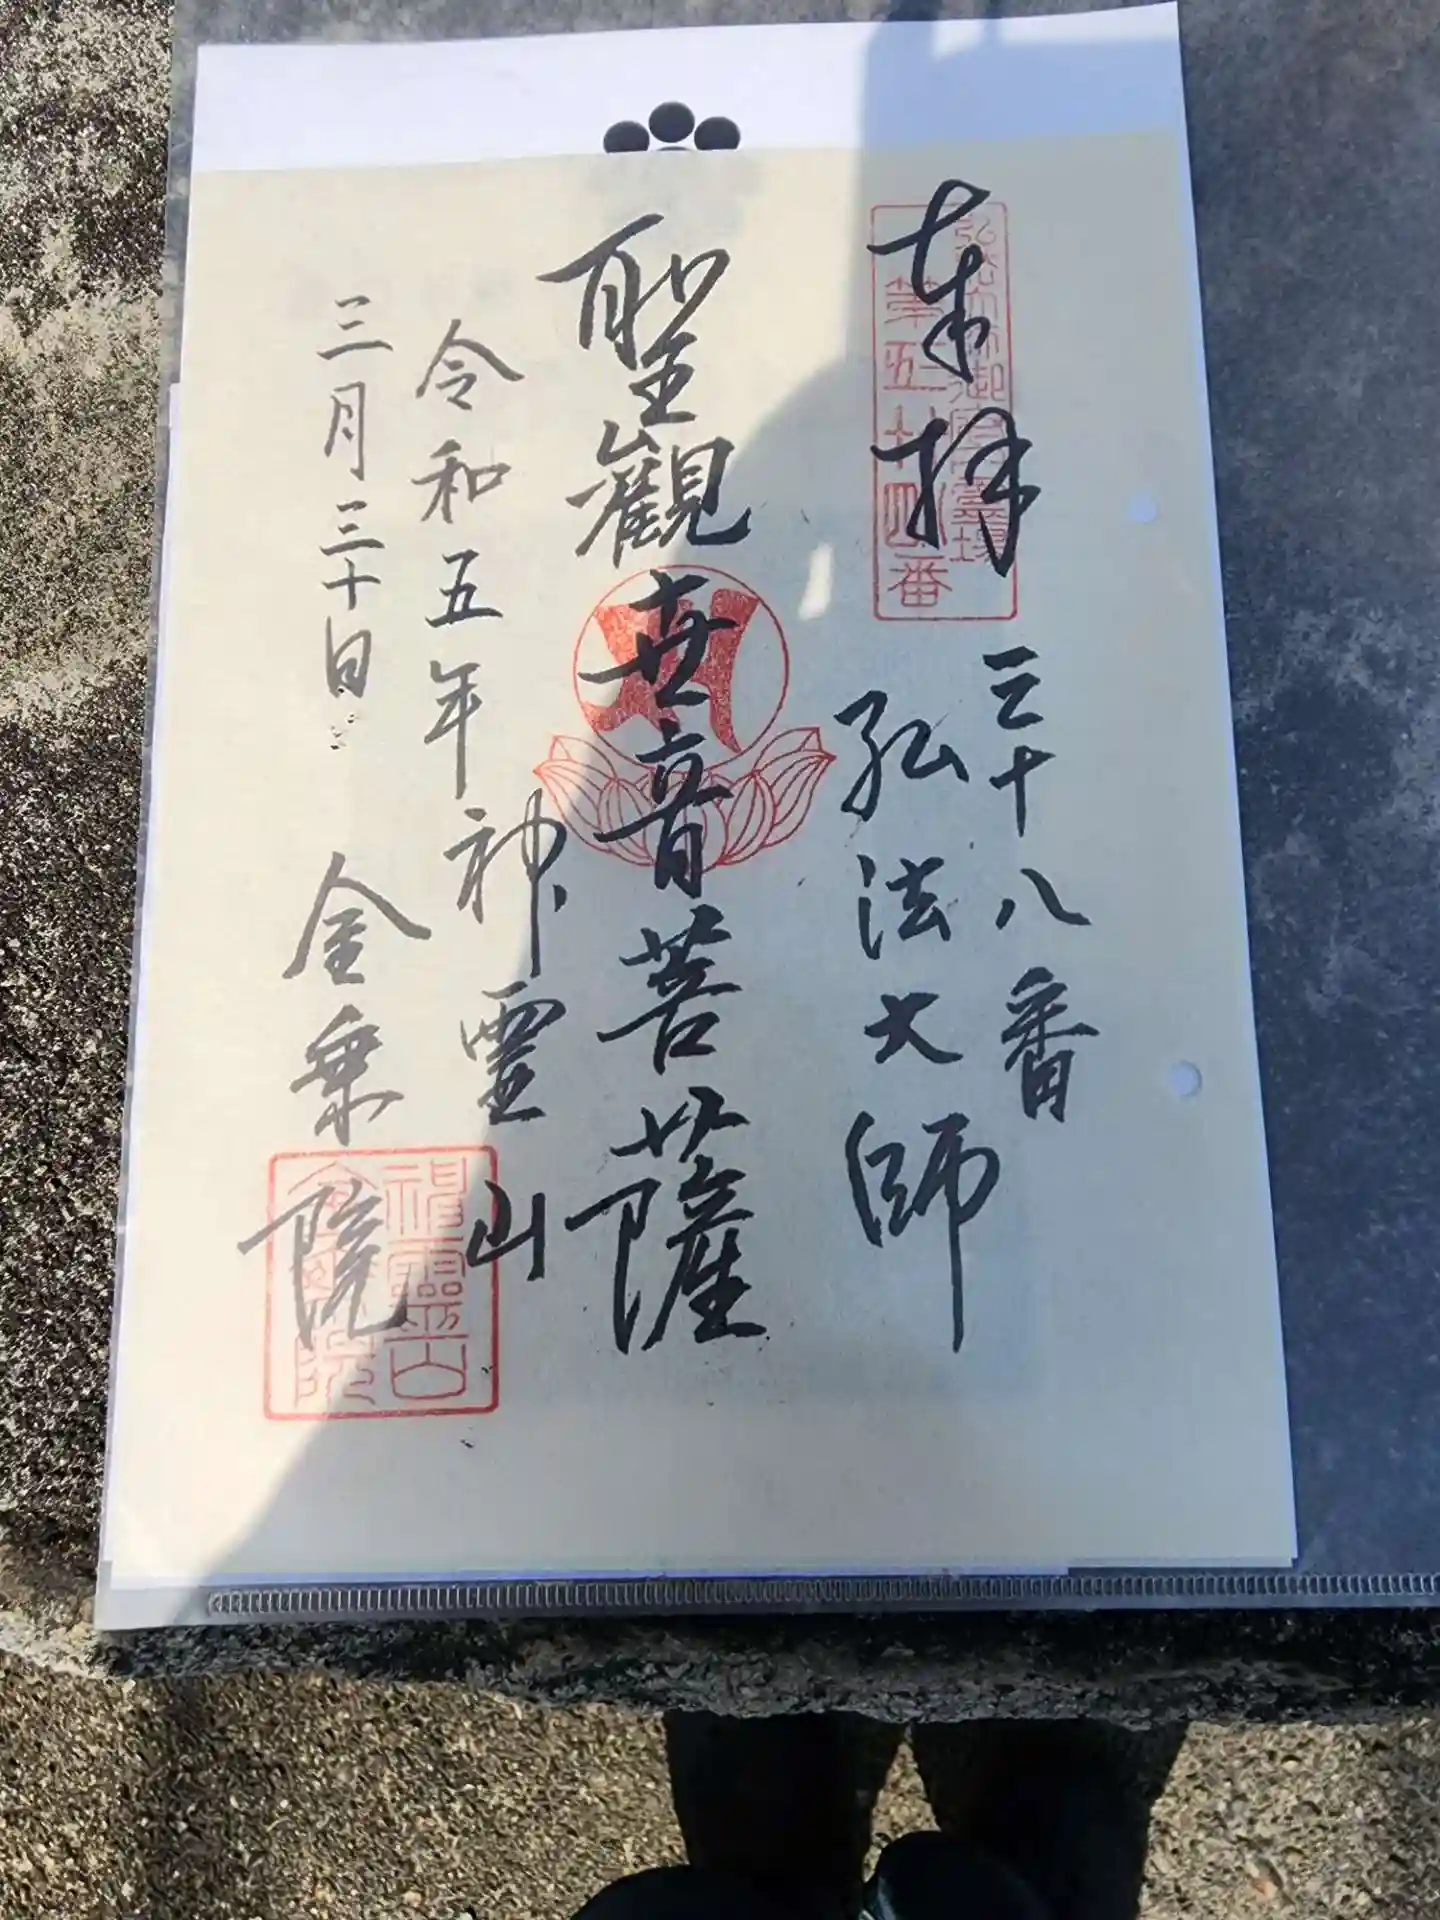 奉拝
弘法大師御府内靈場
三十八番
弘法大師
聖觀世音菩薩
令和五年
神霊山
三月三十日
金乗院
神靈山
金乗院